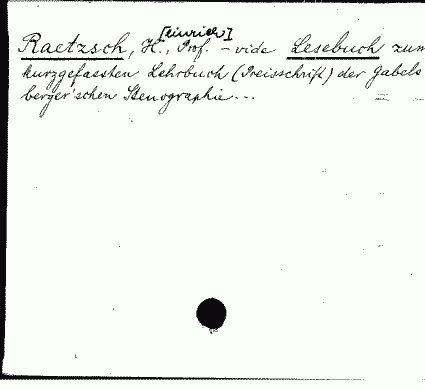 [einrich]
Raetzsch, H., Prof. – vide Lesebuch zum
kurzgefassten Lehrbuch (Preisschrift) der Gabels
berger'schen Stenographie...